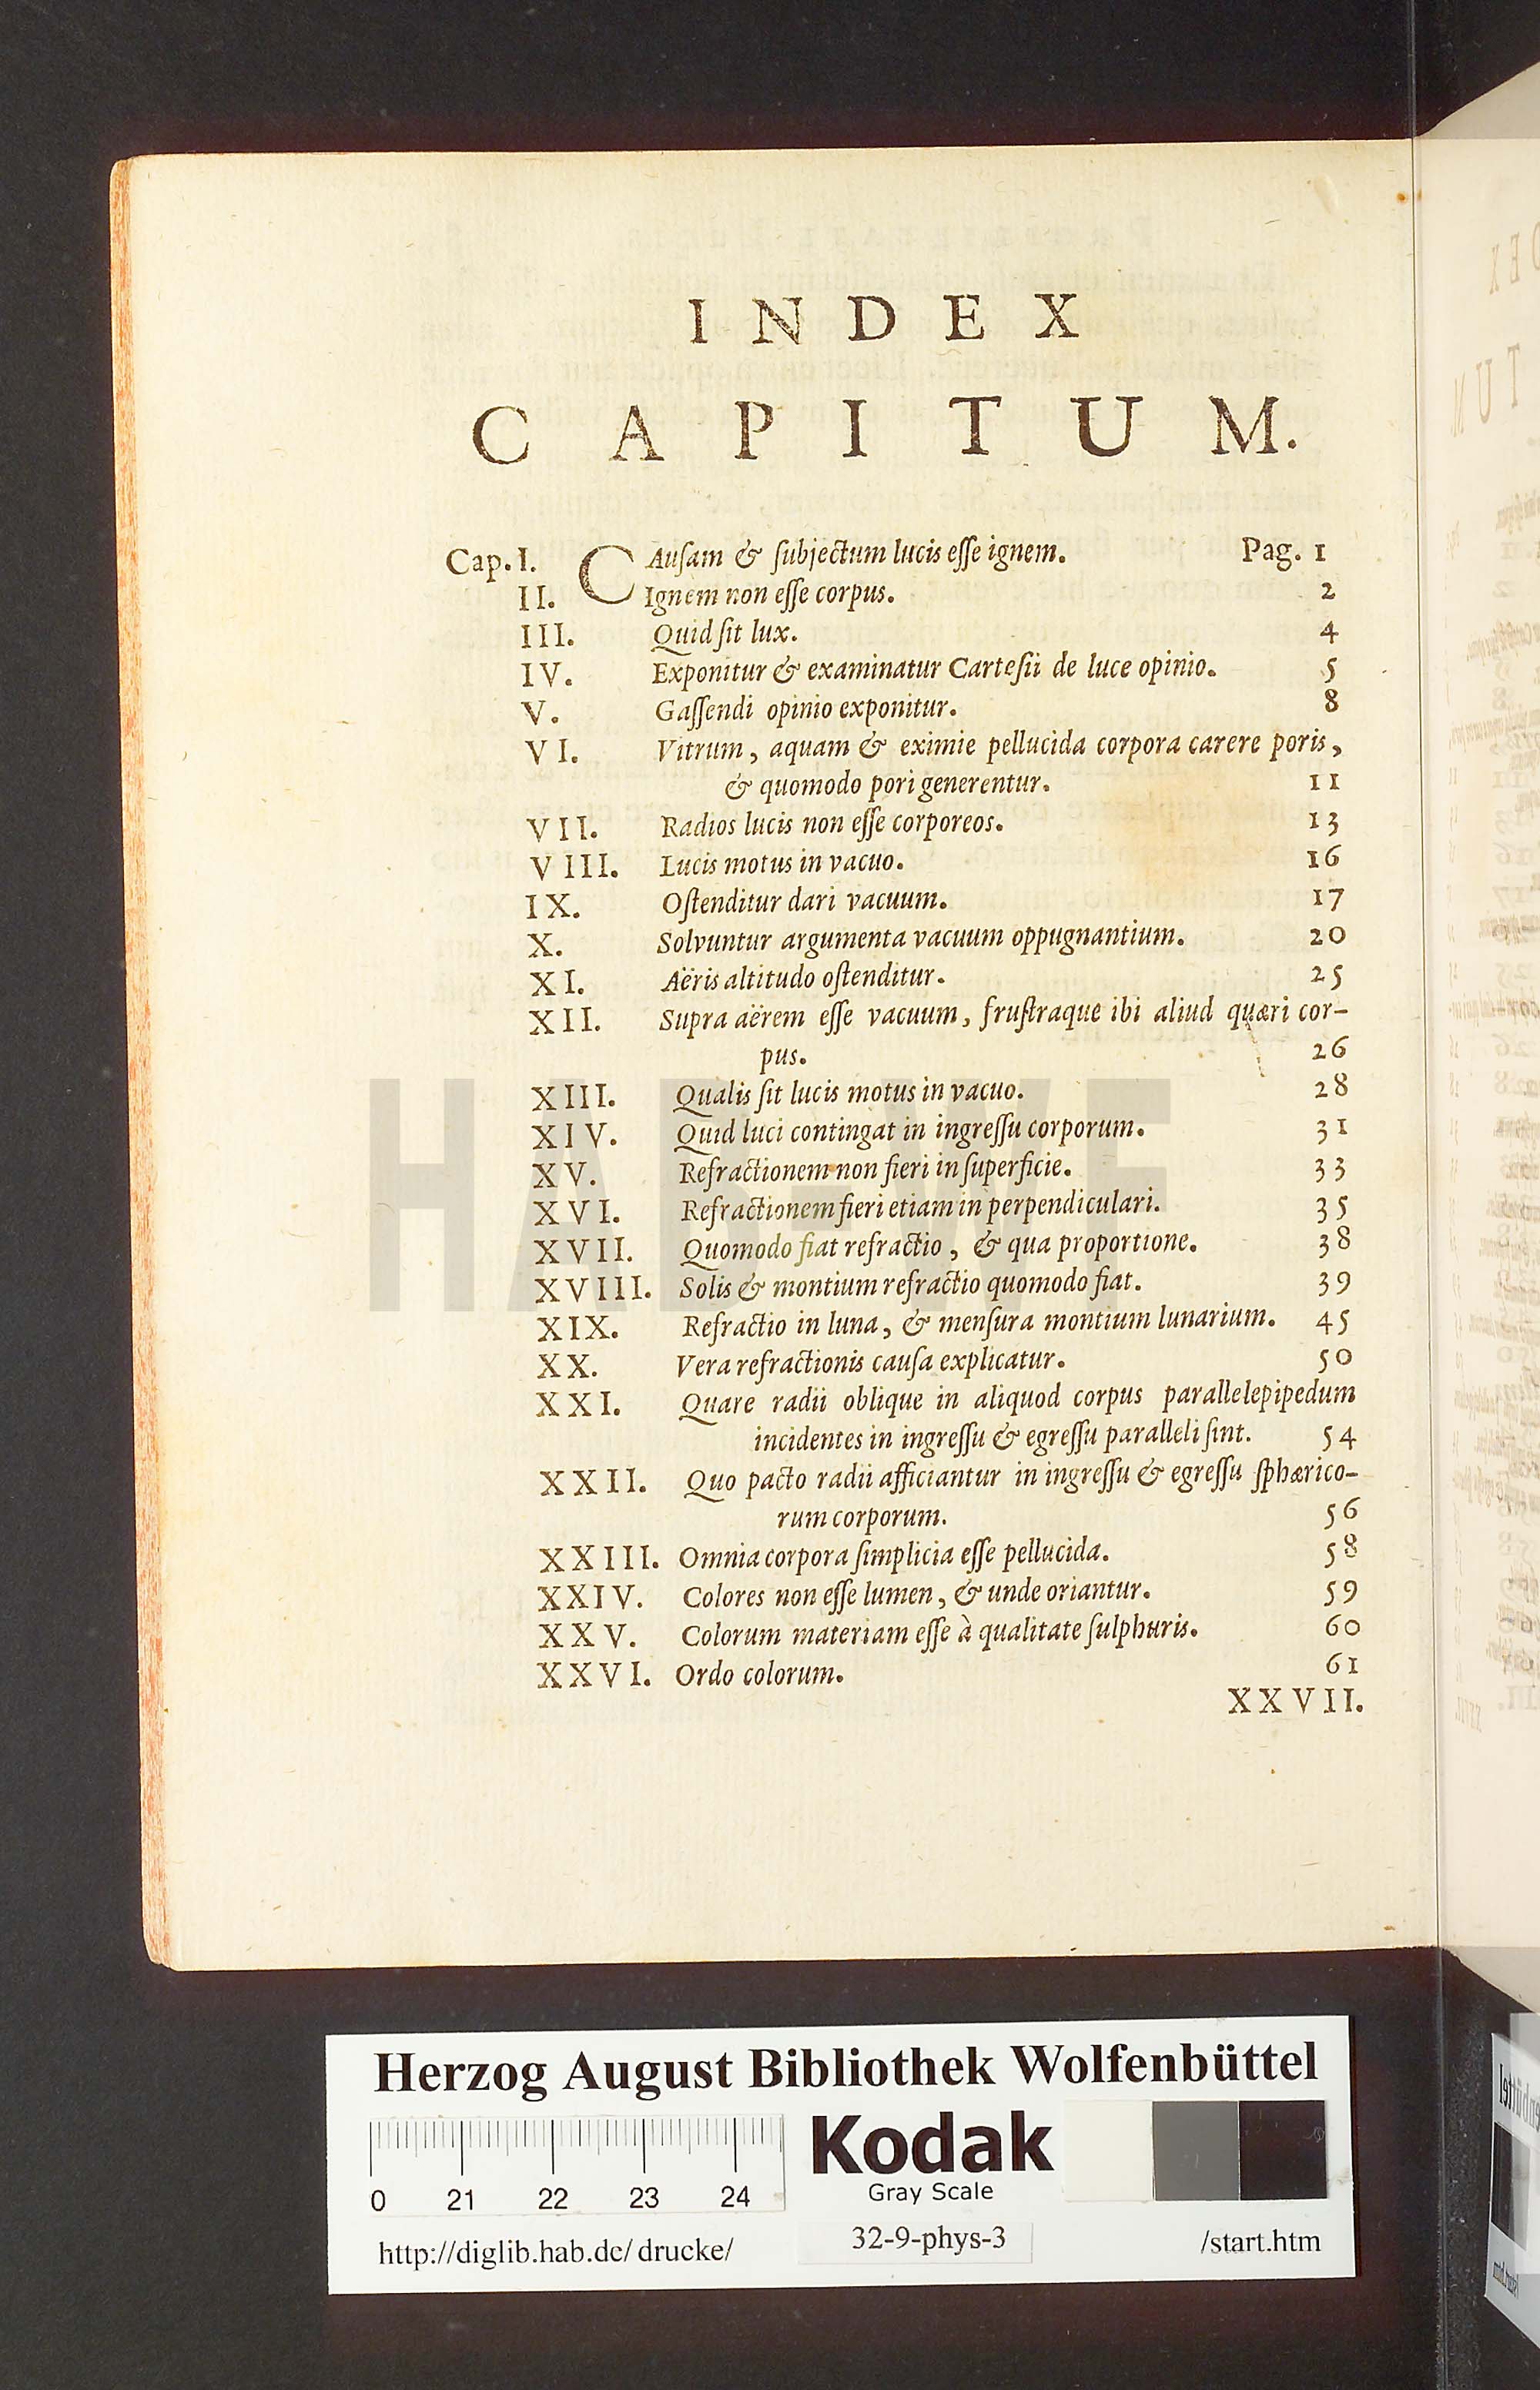 INDEX
CAPITUM.
Cap. I. CAuſam & ſubjectum lucis eſſe ignem. Pag. 1
II. Ignem non eſſe corpus. 2
III. Quid ſit lux. 4
IV. Exponitur & examinatur Carteſii de luce opinio. 5
V. Gaſſendi opinio exponitur. 8
VI. Vitrum, aquam & eximie pellucida corpora carere poris,
& quomodo pori generentur. 11
VII. Radios lucis non eſſe corporeos. 13
VIII. Lucis motus in vacuo. 16
IX. Oſtenditur dari vacuum. 17
X. Solvuntur argumenta vacuum oppugnantium. 20
XI. Aëris altitudo oſtenditur. 25
XII. Supra aërem eſſe vacuum, fruſtraque ibi aliud quæri cor-
pus. 26
XIII. Qualis ſit lucis motus in vacuo. 28
XIV. Quid luci contingat in ingreſſu corporum. 31
XV. Refractionem non fieri in ſuperficie. 33
XVI. Refractionem fieri etiam in perpendiculari. 35
XVII. Quomodo fiat refractio, & qua proportione. 38
XVIII. Solis & montium refractio quomodo fiat. 39
XIX. Refractio in luna, & menſura montium lunarium. 45
XX. Vera refractionis cauſa explicatur. 50
XXI. Quare radii oblique in aliquod corpus parallelepipedum
incidentes in ingreſſu & egreſſu paralleli ſint. 54
XXII. Quo pacto radii afficiantur in ingreſſu & egreſſu ſphærico-
rum corporum. 56
XXIII. Omnia corpora ſimplicia eſſe pellucida. 58
XXIV. Colores non eſſe lumen, & unde oriantur. 59
XXV. Colorum materiam eſſe à qualitate ſulphuris. 60
XXVI. Ordo colorum. 61
XXVII.
Herzog August Bibliothek Wolfenbüttel
Kodak
Gray Scale
0 21 22 23 24
http://diglib.hab.de/drucke/ 32-9-phys-3 /start.htm